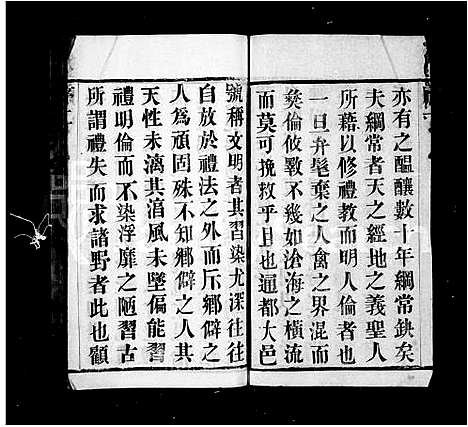 亦有之醞釀數十年綱常鈌矣
夫綱常者天之經地之義聖人
所藉以修禮教而明人倫者也
一旦弁髦棄之人禽之界混而
彝倫攸斁不幾如滄海之橫流
而莫可挽救乎且也通都大邑
號稱文明者其習染尤深往往
自放於禮法之外而斥鄉僻之
人為頑固殊不知鄉僻之人其
天性未漓其湻風未墜偏能習
禮明倫而不染浮靡之陋習古
所謂禮失而求諸野者此也顧